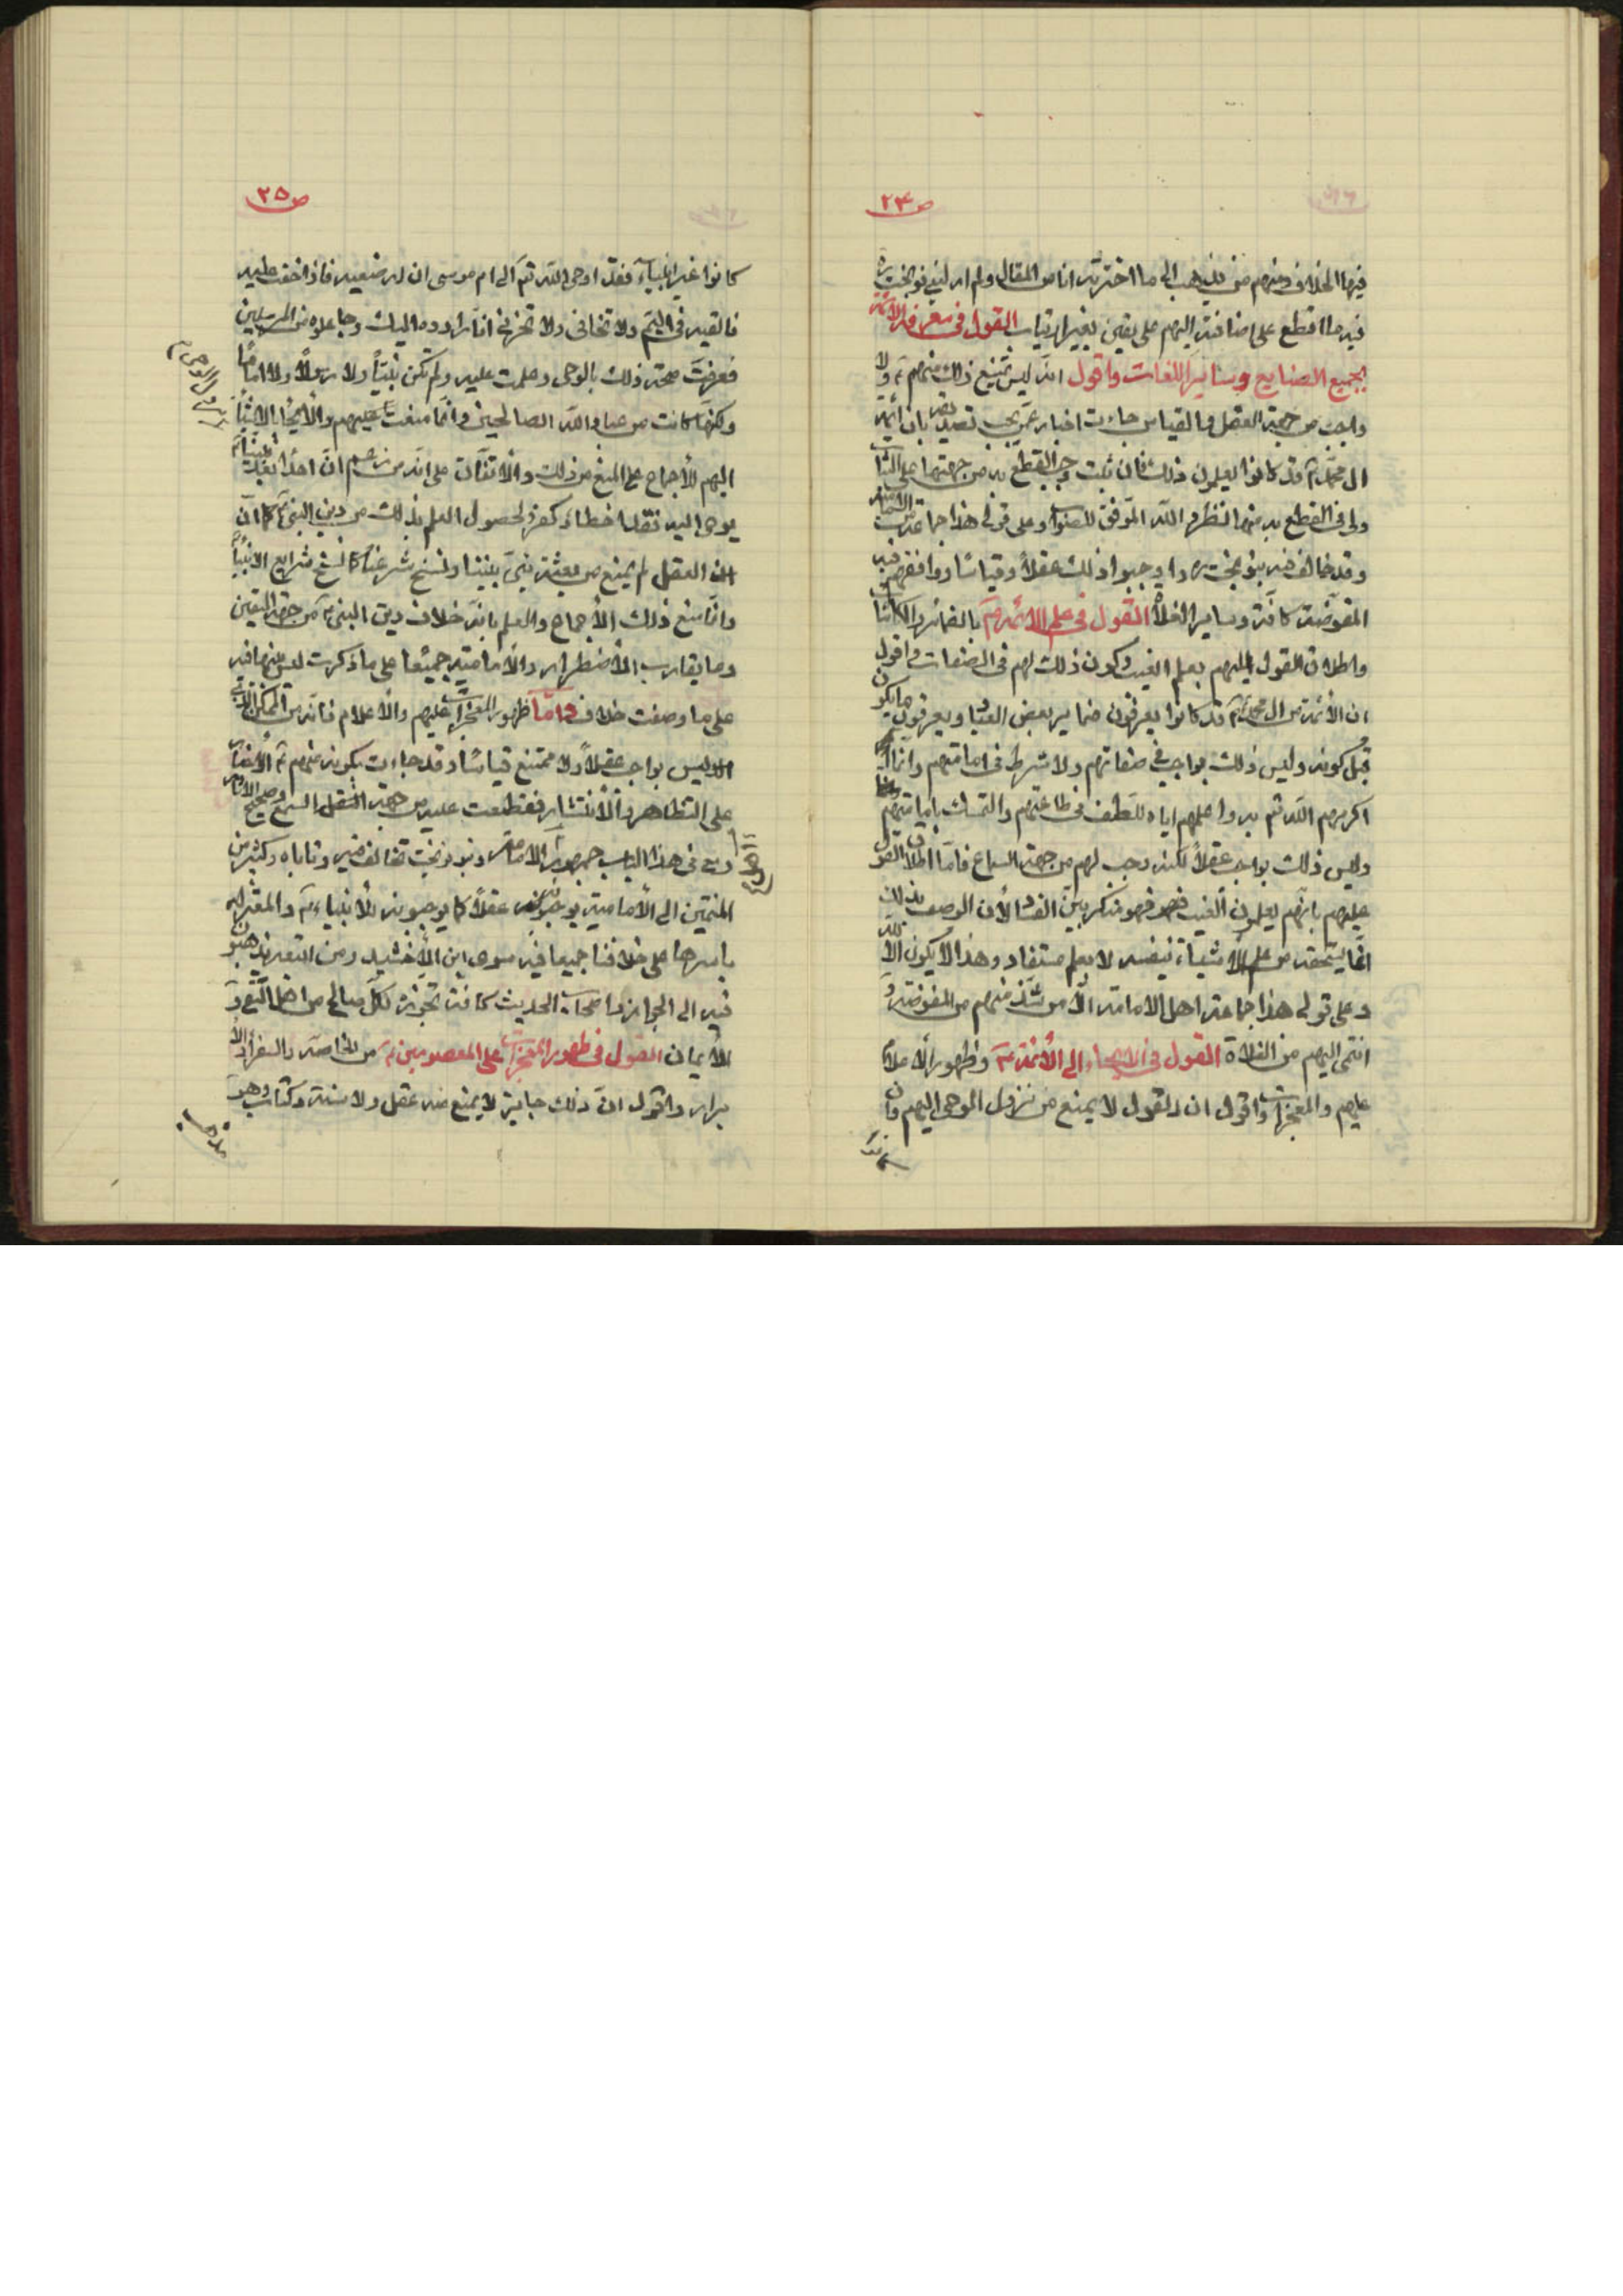 ص ۲۴
فيها الخلاف ومنهم من يذهب الى ما اخترته انا من المقال ولم ار لبنى نوبخت ره
فيه ما اقطع على اضافته اليهم على يقين بغير ارتياب القول فى معرفة الائمة
بجميع الصنايع وساير اللغات واقول انه ليس يمتنع ذلك منهم ع ولا
واجب من جهة العقل والقياس وجاءت اخبار عمن يجب تصديقه بان ائمة
ال محمد ع قد كانوا يعلمون ذلك فان ثبت وجب القطع به من جهتها على الثبات
ولى فى القطع به منها نظر والله الموفق للصواب وعلى قولى هذا جماعة من الامامية
وقد خالف فيه بنو نوبخت ره واوجبوا ذلك عقلاً وقياسًا ووافقهم فيه
المفوضة كافة وساير الغلاة القول فى علم الائمة ع بالضمائر والكائنات
واطلاق القول عليهم بعلم الغيب وكون ذلك لهم فى الصفات واقول
ان الائمة من ال محمد ع قد كانوا يعرفون ضماير بعض العباد ويعرفون ما يكون
قبل كونه وليس ذلك بواجب فى صفاتهم ولا شرط فى امامتهم وانما
اكرمهم الله تعم به واعلمهم اياه للطف فى طاعتهم والتمسك بامامتهم
وليس ذلك بواجب عقلاً لكنه وجب لهم من جهة السماع فاما اطلاق القول
عليهم بانهم يعلمون الغيب فهو منكر بين الفساد لأن الوصف بذلك
انما يستحقه من علم الاشياء بنفسه لا بعلم مستفاد وهذا لا يكون الا لله
وعلى قولى هذا جماعة اهل الامامة الا من شذ منهم من المفوضة ومن
انتمى اليهم من الغلاة القول فى الايحاء الى الأئمة ع وظهور الاعلام
عليهم والمعجزات واقول ان العقل لا يمنع من نزول الوحى اليهم وان
كانوا
ص ۲۵
كانوا غير انبياء فقد اوحى الله تعم الى ام موسى ان ارضعيه فاذا خفت عليه
فالقيه فى اليم ولا تخافى ولا تحزنى انا رادوه اليك وجاعلوه من المرسلين
فعرفت صحة ذلك بالوحى وعملت عليه ولم تكن نبيًا ولا رسولاً ولا امامًا
ولكنها كانت من عباد الله الصالحين وانما منعت نزول الوحى عليهم والايحاء بالاشياء
اليهم للأجماع على المنع من ذلك والاتفاق على انه من زعم ان احدًا بعد نبينا ع
يوحى اليه فقد اخطأ وكفر ولحصول العلم بذلك من دين النبى ع كما ان
العقل لم يمنع من بعثة نبى بعد نبينا ونسخ شرعنا كما نسخ شرايع الانبياء
وانما منع ذلك الأجماع والعلم بانه خلاف دين النبى ع من جهة اليقين
وما يقارب الأضطرار والأمامية جميعًا على ما ذكرت ليس بينها فيه
على ما وصفت خلاف واما ظهور المعجزات عليهم والاعلام فانه من الممكن الذى
ليس بواجب عقلاً ولا ممتنع قياسًا وقد جاءت بكونه منهم ع الأخبار
على التظاهر والأنتشار فقطعت عليه من جهة السمع وصحيح الاثار
ومعى فى هذا الباب جمهور اهل الامامة وبنو نوبخت تخالف فيه وتاباه وكثير من
المنتمين الى الأمامية يوجبونه عقلاً كما يوجبونه للأنبياء ع والمعتزلة
باسرها على خلافنا جميعا فيه سوى ابن الأخشيد ومن اتبعه يذهبون
فيه الى الجواز واصحاب الحديث كافة تجوزه لكل صالح من اهل التقى و
الأيمان القول فى ظهور المعجزات على المعصومين ع من الخاصة والسفراء والا
بواب واقول ان ذلك جايز لا يمنع منه عقل ولا سنة وكتاب وهو
مذهب